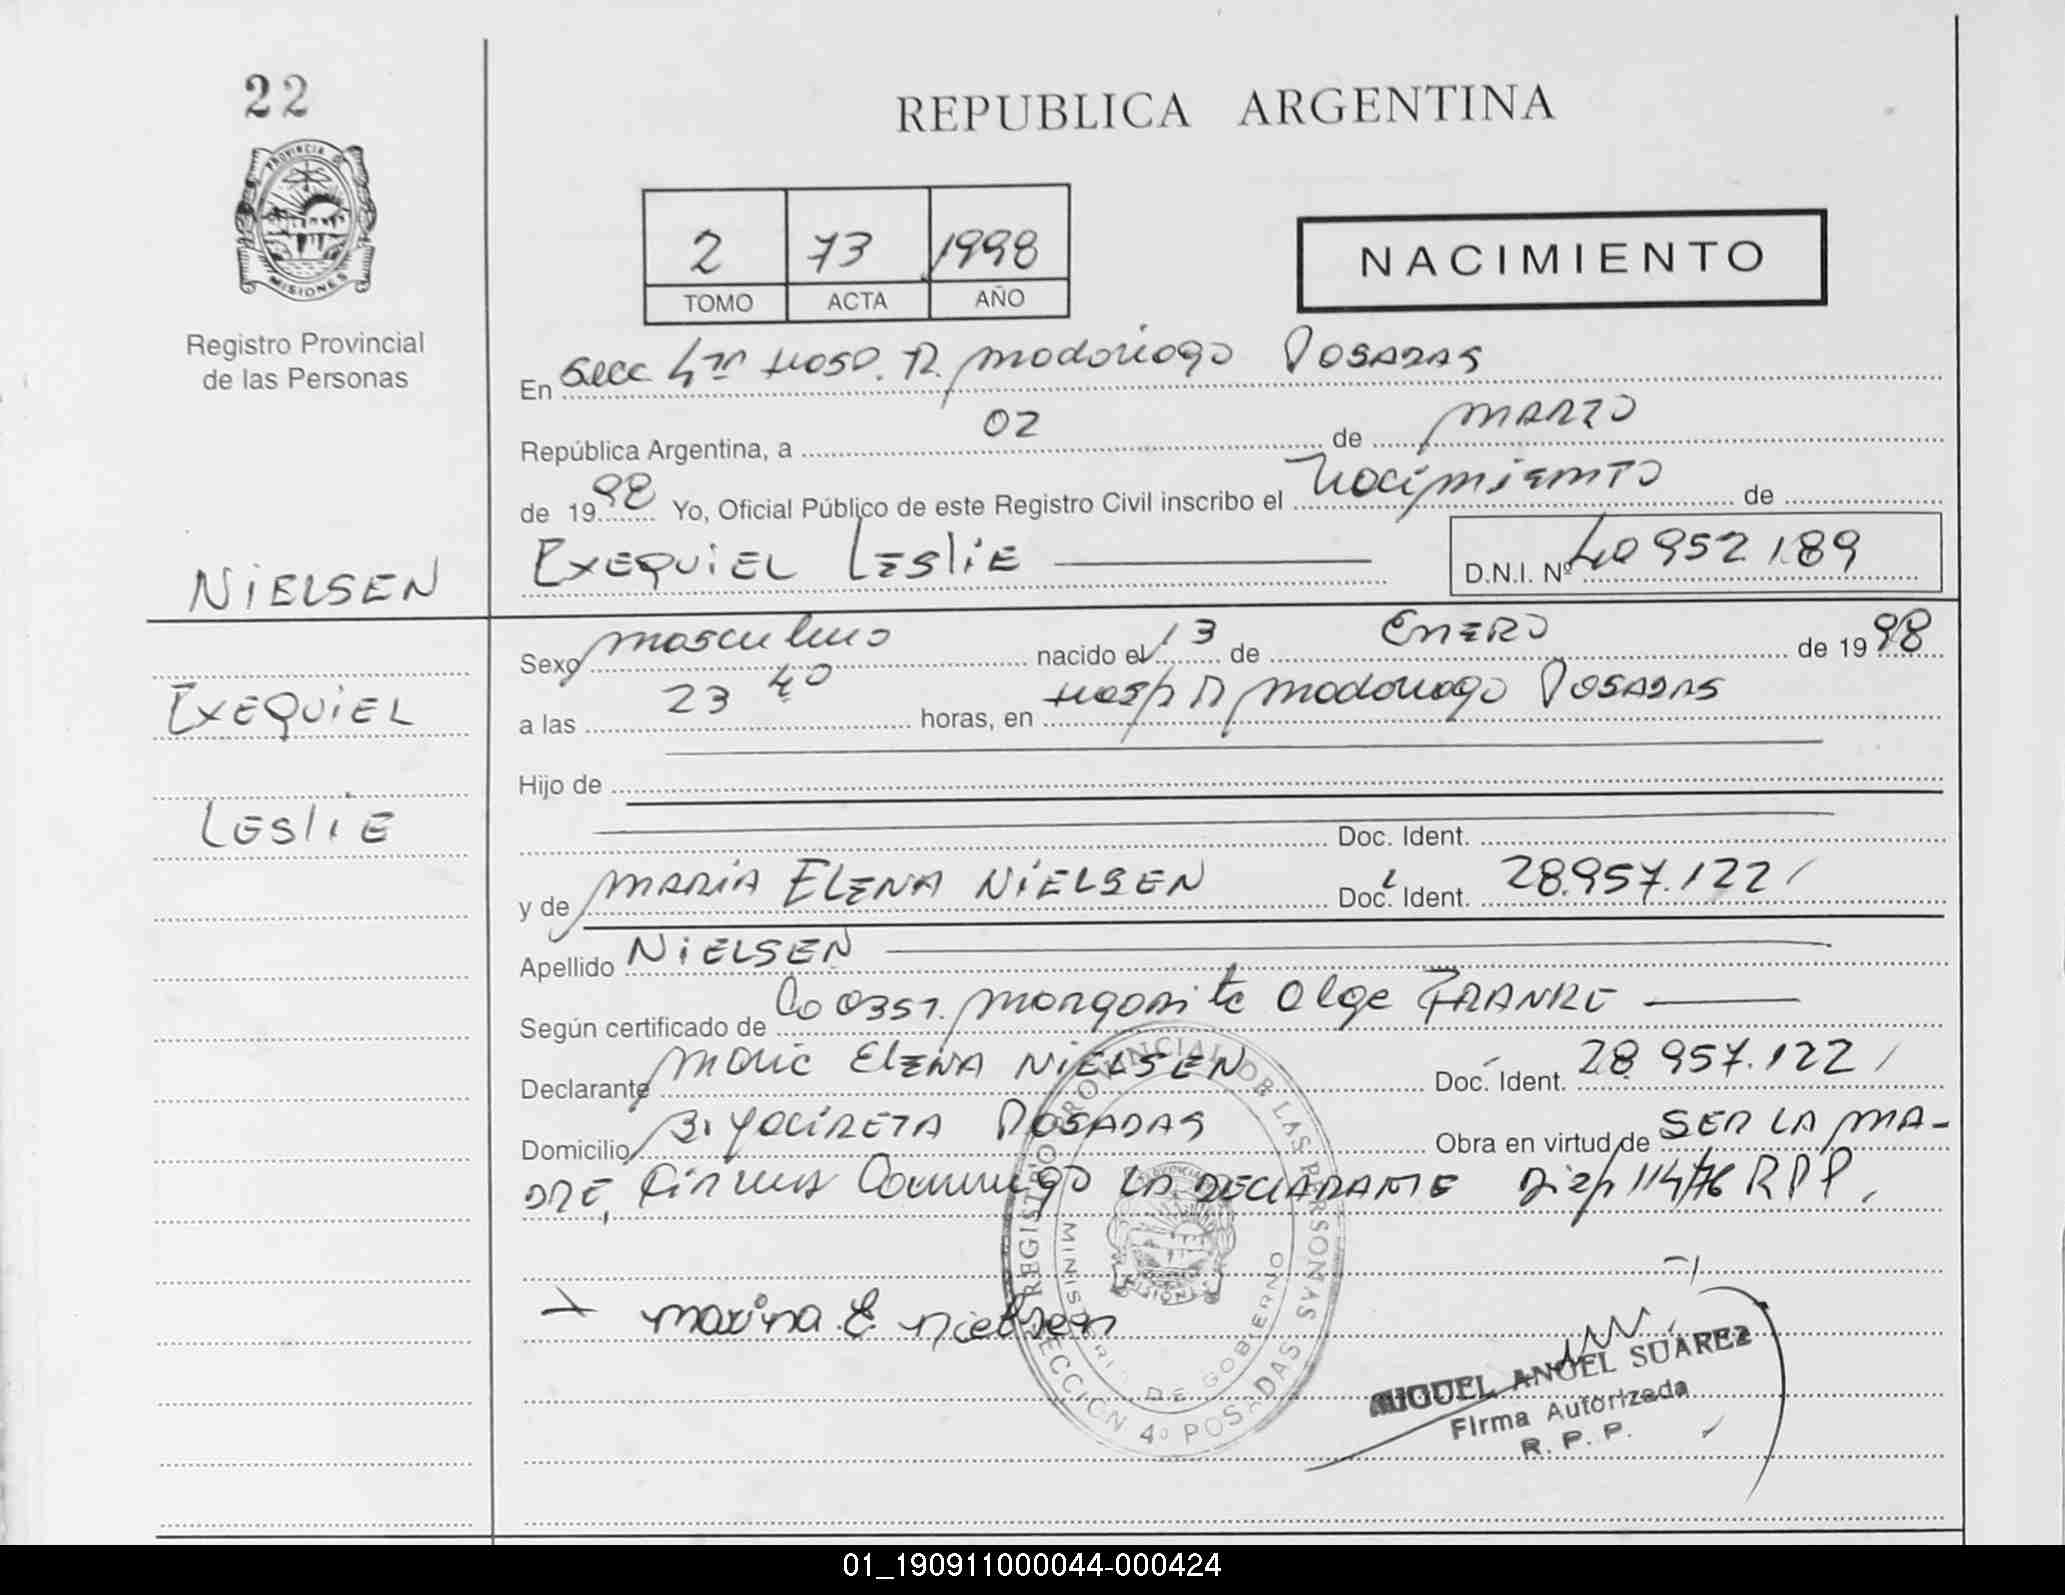 22
REPUBLICA ARGENTINA
PROVINCIA DE
MISIONES
Registro Provincial
de las Personas
2 73 1998
TOMO ACTA AÑO
NACIMIENTO
En Secc 4ta Hosp. R. Madariaga Posadas
República Argentina, a 02 de Marzo
de 1998 Yo, Oficial Público de este Registro Civil inscribo el Nacimiento de
NIELSEN
EXEQUIEL LESLIE
D.N.I. Nº 40 952 189
Sexo masculino nacido el 13 de ENERO de 1998
EXEQUIEL
a las 23 40 horas, en Hosp R Madariaga Posadas
Hijo de
LESLIE
Doc. Ident.
y de MARIA ELENA NIELSEN Doc. Ident. 28.957.122
Apellido NIELSEN
Según certificado de Obst. Margarita Olga FRANKE
Declarante Maria ELENA NIELSEN Doc. Ident. 28 957.122
Domicilio B. YACIRETA POSADAS Obra en virtud de SER LA MA-
DRE, Firma Conmigo LA DECLARANTE Disp 114/76 RPP.
marina E nielsen
REGISTRO PROVINCIAL DE LAS PERSONAS
MINISTERIO DE GOBIERNO
SECCION 4ª POSADAS
MIGUEL ANGEL SUAREZ
Firma Autorizada
R. P. P.
01_190911000044-000424